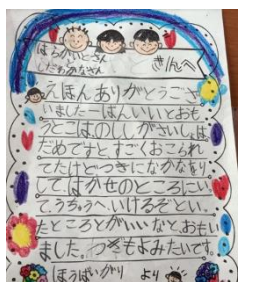 はらかいとさん
しだわかなさん
きんへ
えほんありがとうござ
いました一ばんいいとおも
うとこは、のししがさいしょは
だめですと、すごくおこられ
てたけど、つぎになかなおり
して、はかせのところにい
て、うちゅうへいけるぞとい
たところがいいなと、おもい
ました。つぎもよみたいです。
より